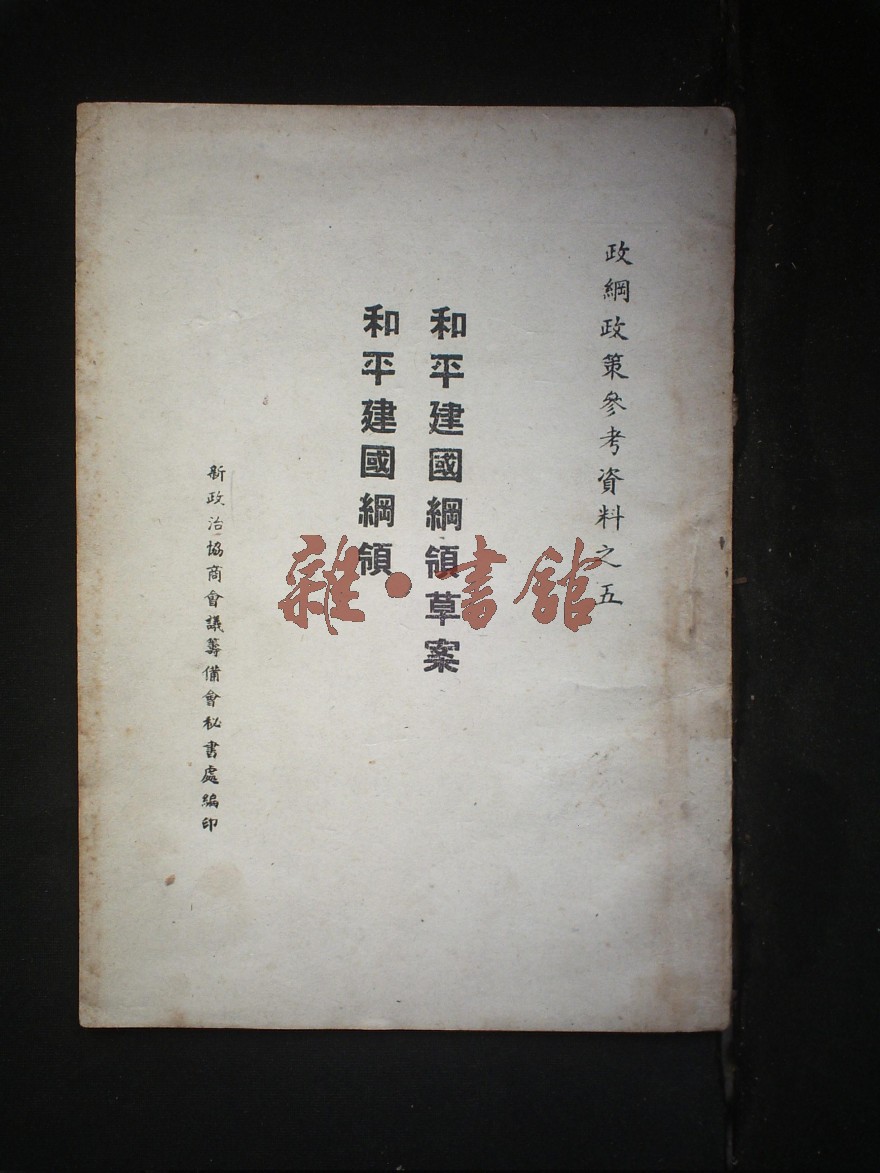 政綱政策參考資料之五
和平建國綱領草案
和平建國綱領
新政治協商會議籌備會秘書處編印
雜·書館